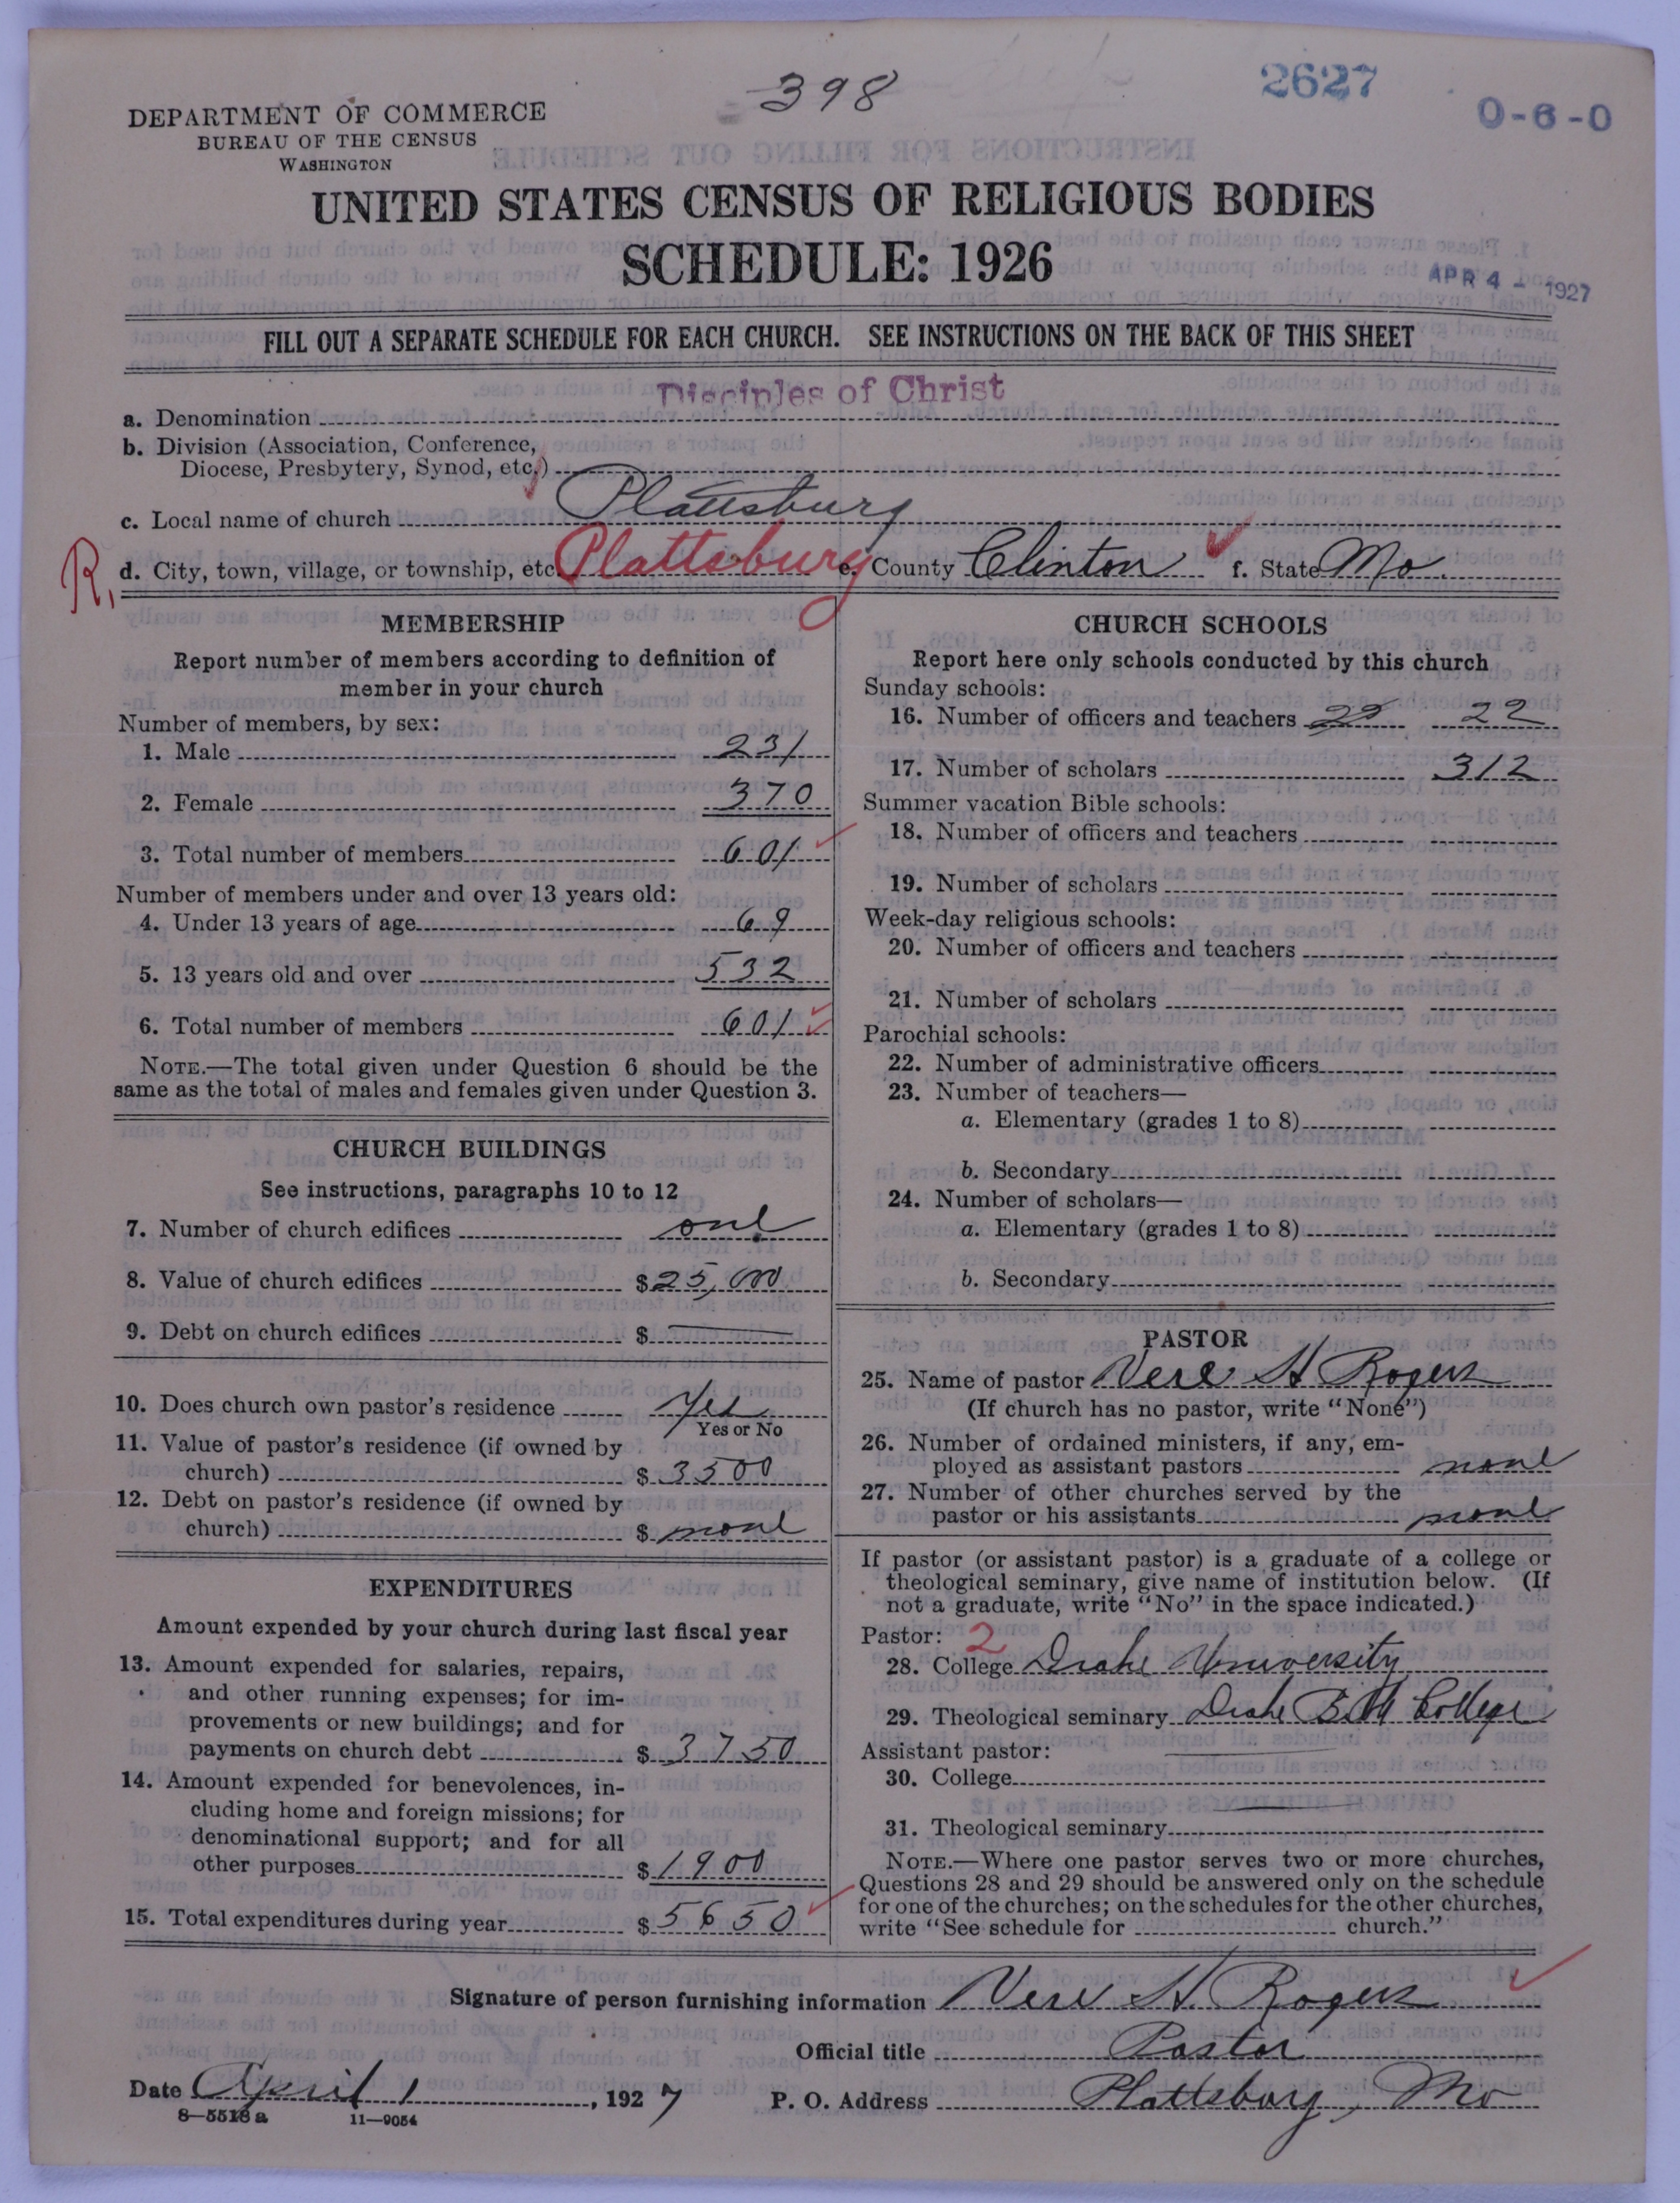 398
2627
0-6-0
DEPARTMENT OF COMMERCE
BUREAU OF THE CENSUS
WASHINGTON
UNITED STATES CENSUS OF RELIGIOUS BODIES
SCHEDULE: 1926
APR 4 - 1927
FILL OUT A SEPARATE SCHEDULE FOR EACH CHURCH. SEE INSTRUCTIONS ON THE BACK OF THIS SHEET
Disciples of Christ
a. Denomination
b. Division (Association, Conference,
Diocese, Presbytery, Synod, etc.)
c. Local name of church Plattsburg
R, d. City, town, village, or township, etc. Plattsburg e. County Clinton f. State Mo.
MEMBERSHIP
Report number of members according to definition of
member in your church
Number of members, by sex:
1. Male 231
2. Female 370
3. Total number of members 601
Number of members under and over 13 years old:
4. Under 13 years of age 69
5. 13 years old and over 532
6. Total number of members 601
NOTE.—The total given under Question 6 should be the
same as the total of males and females given under Question 3.
CHURCH BUILDINGS
See instructions, paragraphs 10 to 12
7. Number of church edifices one
8. Value of church edifices $25,000
9. Debt on church edifices $ —
10. Does church own pastor's residence Yes
Yes or No
11. Value of pastor's residence (if owned by
church) $3500
12. Debt on pastor's residence (if owned by
church) $ none
EXPENDITURES
Amount expended by your church during last fiscal year
13. Amount expended for salaries, repairs,
and other running expenses; for im-
provements or new buildings; and for
payments on church debt $ 3750
14. Amount expended for benevolences, in-
cluding home and foreign missions; for
denominational support; and for all
other purposes $1900
15. Total expenditures during year $5650
CHURCH SCHOOLS
Report here only schools conducted by this church
Sunday schools:
16. Number of officers and teachers 22
17. Number of scholars 312
Summer vacation Bible schools:
18. Number of officers and teachers
19. Number of scholars
Week-day religious schools:
20. Number of officers and teachers
21. Number of scholars
Parochial schools:
22. Number of administrative officers
23. Number of teachers—
a. Elementary (grades 1 to 8)
b. Secondary
24. Number of scholars—
a. Elementary (grades 1 to 8)
b. Secondary
PASTOR
25. Name of pastor Vere H Rogers
(If church has no pastor, write "None")
26. Number of ordained ministers, if any, em-
ployed as assistant pastors none
27. Number of other churches served by the
pastor or his assistants none
If pastor (or assistant pastor) is a graduate of a college or
theological seminary, give name of institution below. (If
not a graduate, write "No" in the space indicated.)
Pastor: 2
28. College Drake University
29. Theological seminary Drake College
Assistant pastor:
30. College
31. Theological seminary
NOTE.—Where one pastor serves two or more churches,
Questions 28 and 29 should be answered only on the schedule
for one of the churches; on the schedules for the other churches,
write "See schedule for church."
Signature of person furnishing information Vere H. Rogers
Official title Pastor
Date April 1, 1927 P. O. Address Plattsburg, Mo
8—5518a 11—9054